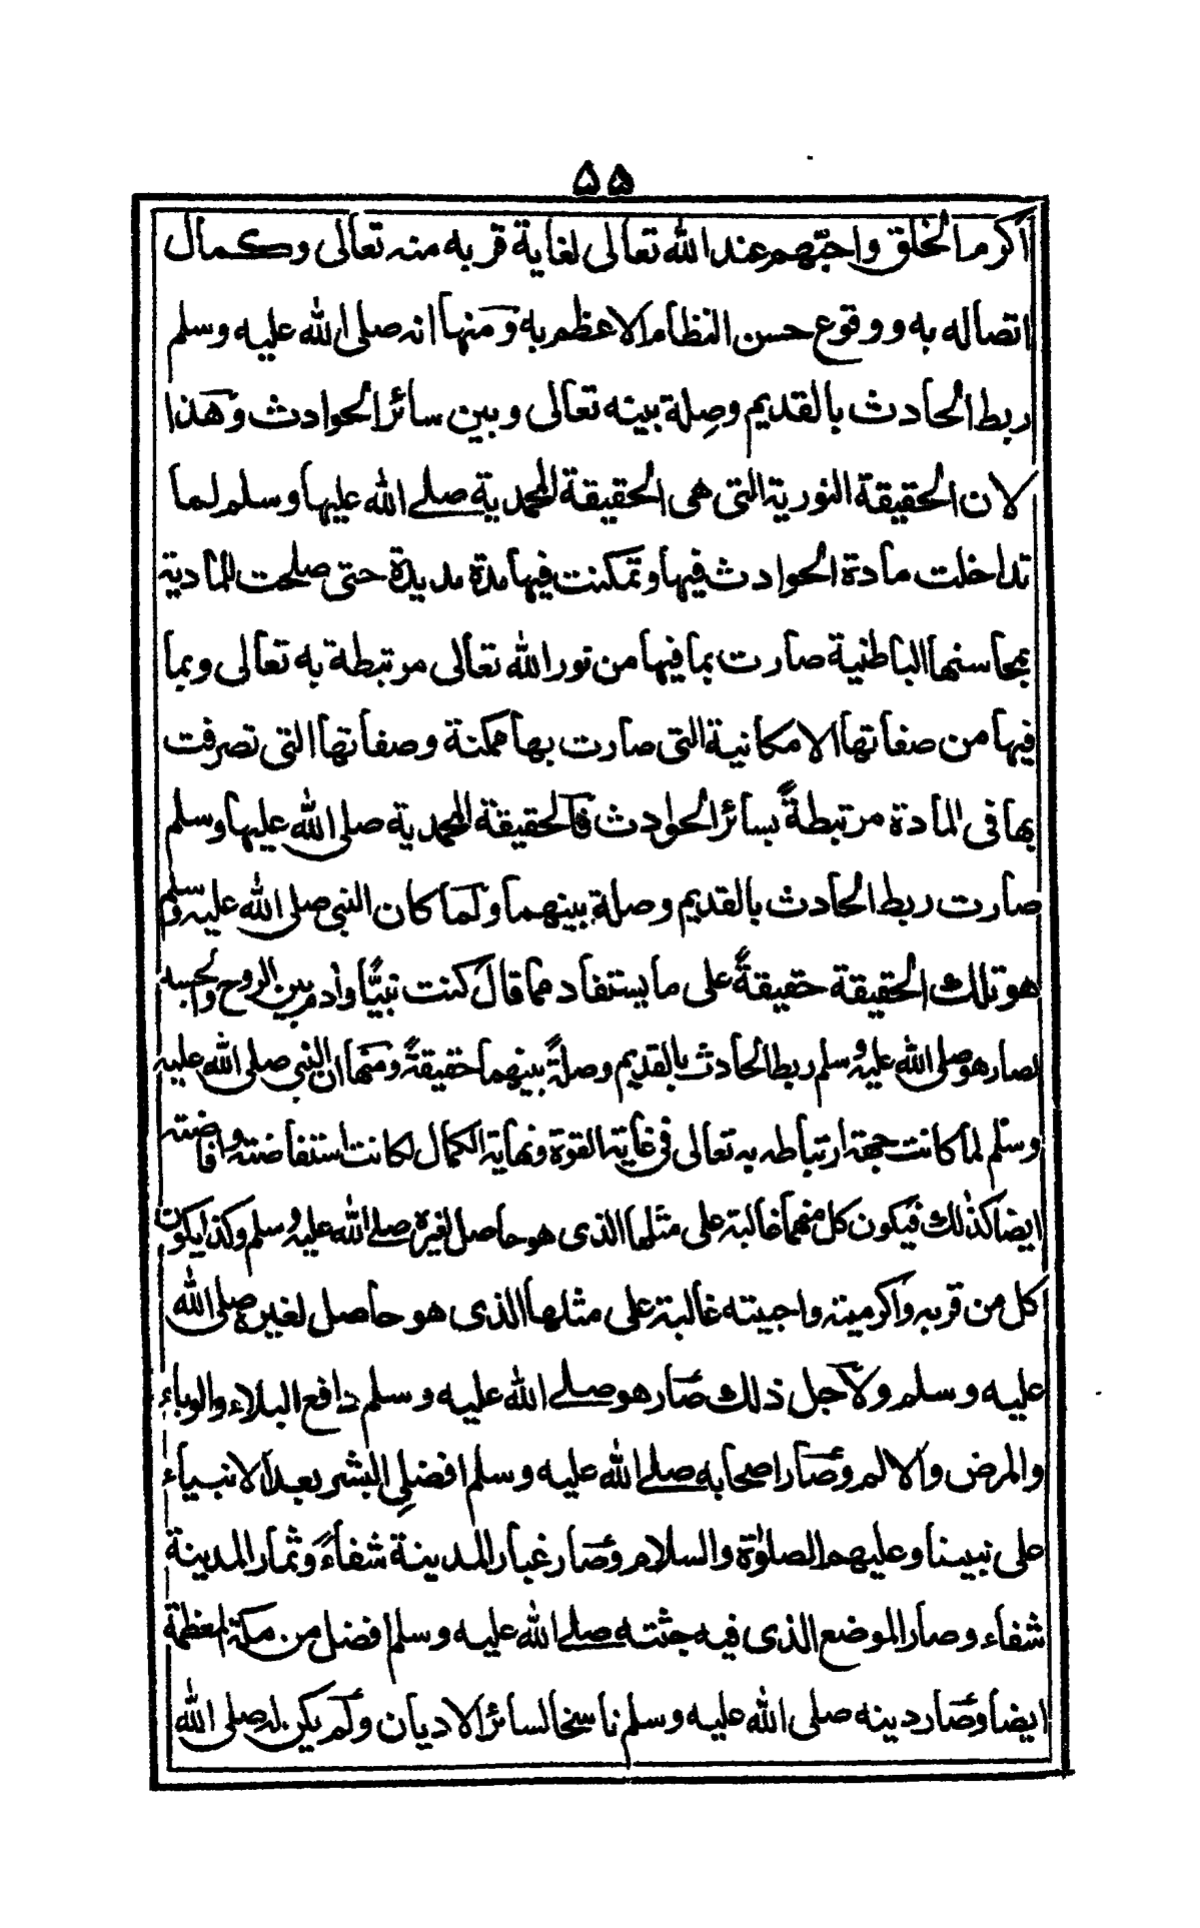 ۵۵
اكرم الخلق واحبّهم عند الله تعالى لغاية قربه منه تعالى وكمال
اتصاله به ووقوع حسن النظام الاعظم به ومنها انه صلى الله عليه وسلم
ربط الحادث بالقديم وصِلة بينه تعالى وبين سائر الحوادث وهذا
لان الحقيقة النورية التى هى الحقيقة المحمدية صلے الله عليها وسلم لما
تداخلت مادة الحوادث فيها وتمكنت فيها مدة مديدة حتى صلحت المادية
بمحاسنها الباطنية صارت بما فيها من نور الله تعالى مرتبطة به تعالى وبما
فيها من صفاتها الامكانية التى صارت بها ممكنة وصفاتها التى تصرفت
بها فى المادة مرتبطةً بسائر الحوادث فالحقيقة المحمدية صلى الله عليها وسلم
صارت ربط الحادث بالقديم وصلة بينهما وكما كان النبى صلى الله عليه وسلم
هو تلك الحقيقة حقيقةً على ما يستفاد مما قال كنت نبيًّا وآدم بين الروح والجسد
لصار هو صلى الله عليه وسلم ربط الحادث بالقديم وصلةً بينهما حقيقةً ومنها ان النبى صلى الله عليه
وسلم لما كانت جهة ارتباطه به تعالى فى غاية القوة ونهاية الكمال لكانت استفاضته وافاضته
ايضا كذلك فيكون كل منهما غالبة على مثلها الذى هو حاصل لغيره صلے الله عليه وسلم وكذا يكون
كل من قربه واكرميته واحبيته غالبة على مثلها الذى هو حاصل لغيره صلى الله
عليه وسلم ولاجل ذلك صار هو صلے الله عليه وسلم دافع البلاء والوباء
والمرض والالم وصار اصحابه صلے الله عليه وسلم افضلِ البشر بعد الانبياء
على نبينا وعليهم الصلوٰة والسلام وصار غبار المدينة شفاءً وثمار المدينة
شفاء وصار الموضع الذى فيه جثته صلے الله عليه وسلم افضل من مكة المعظمة
ايضا وصار دينه صلى الله عليه وسلم ناسخا لسائر الاديان ولم يكن له صلى الله